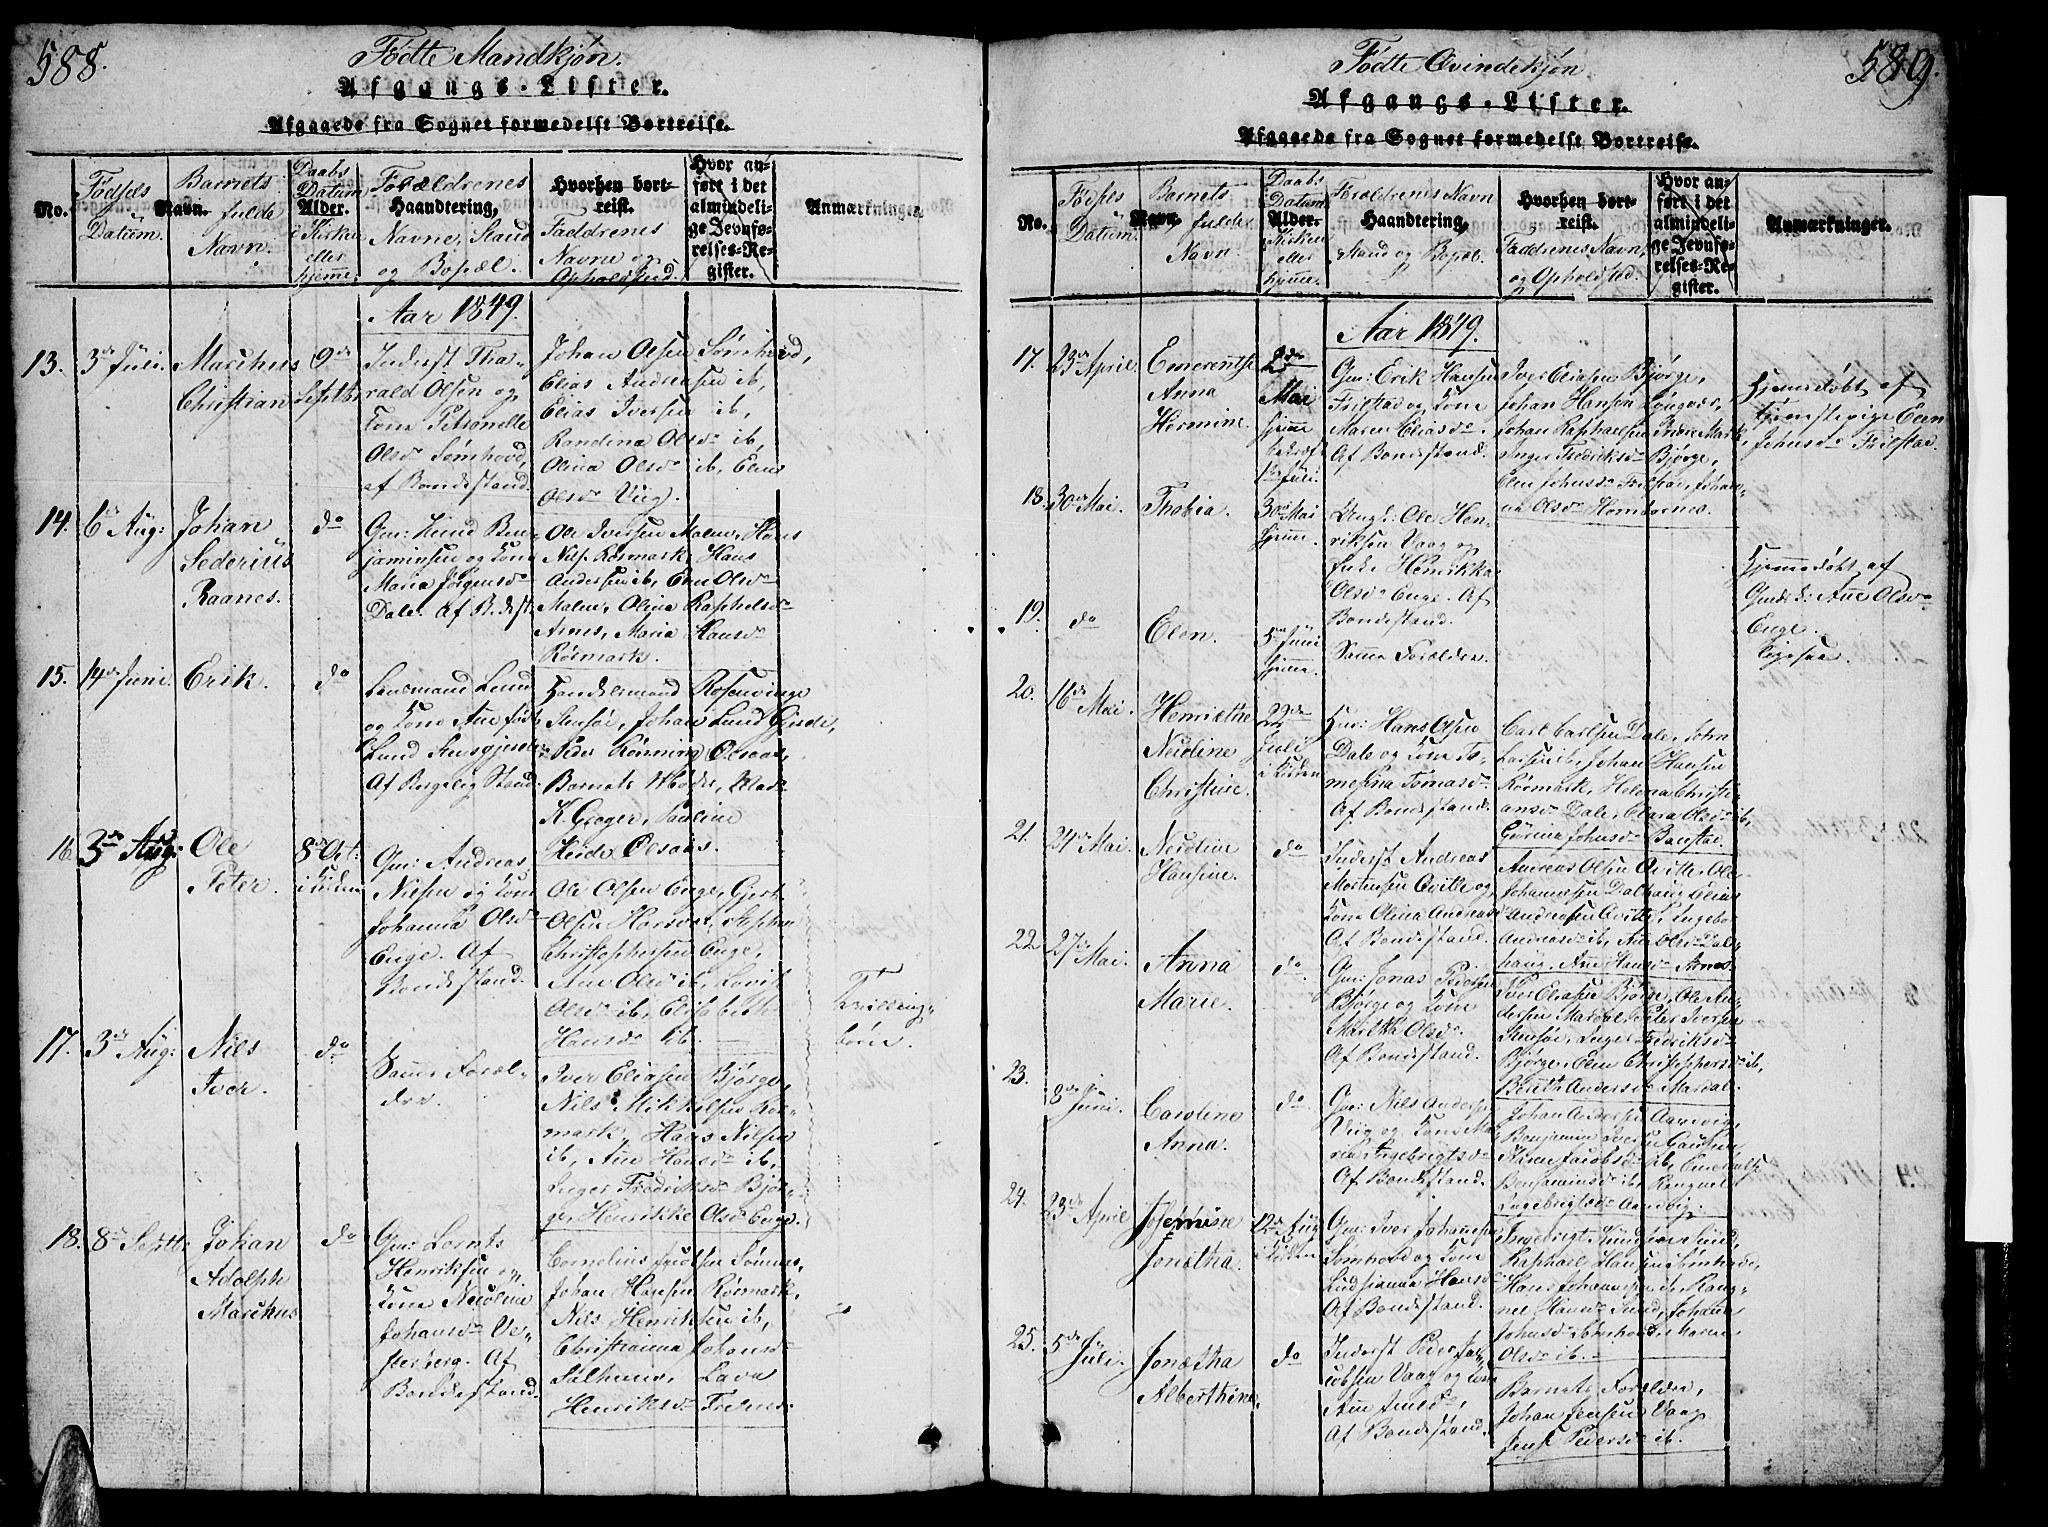 588.
Fødte Mandkjøn.
Afgangs-Lister.
Afgaaede fra Sognet formedelst Bortreise.
No.
Fødsels Datum.
Barnets fulde Navn.
Navn.
Daabs Datum i Kirken eller hjemme.
Alder.
Forældrenes Navne, Stand og Bopæl.
Haandtering,
Hvorhen bortreist.
Faddrenes Navne og Opholdssted.
Hvor anført i det almindelige Jevnførelses-Register.
Anmærkninger.
Aar 1849.
13.
3de Juli.
Marchus
Christian
9de
Septbr
Inderst Tha-
rald Olsen og
Kone Petronelle
Olsd Sømhovd,
af Bondestand.
Johan Olsen Sømhovd,
Elias Andreasen ib,
Elias Iversen ib,
Randina Olsd ib,
Olina Olsd ib, Elen
Olsd Viig.
14.
6te Aug:
Johan
Sederius
Raanes.
do
Gm: Knud Ben-
jaminsen og Kone
Maria Jørgensd
Dale. Af B.dest.
Ole Iversen Malm, Hans
Nils. Rørmark, Hans
Andersen ib, Elen Olsd
Malm, Olina Raphelsd
Arnes, Maria Hansd
Rørmark.
15.
14de Juni.
Erik.
do
Lensmand Lund
og Kone Ane født
Lund
Af Borgelig Stand.
Handelsmand Rosenvinge
Stensøe, Johan Lund Gjerde,
Peder Rønning Olsaas,
Barnets Moder,
K. Greger, Pauline
Heide Olsaas.
16.
3de Aug:
Ole
Peter.
8de Oct:
i Kirken
Gm: Andreas
Nilsen og Kone
Johanna Olsd
Enge. Af
Bondestand.
Ole Olsen Enge, Gjert
Olsen Horsvet, Stephen
Christophersen Enge,
Ane Olsd ib, Lovise
Olsd ib, Elisabeth
Hansd ib.
Tvilling-
børn.
17.
3de Aug:
Nils
Iver.
do
Samme Foræl-
dre.
Iver Eliasen Bjørge,
Nils Mikkelsen Rør-
mark, Hans Nilsen
ib, Ane Hansd ib,
Inger Fredriksd Bjør-
ge, Henrikke Olsd Enge.
18.
8de Septb.
Johan
Adolph
Marchus
do
Gm: Lornts
Henriksen og
Kone Nicoline
Johansd Ve-
sterberg. Af
Bondestand.
Cornelius
Johan Hansen Rørmark,
Nils Henriksen ib,
Christianna Johansd
Salhuus, Lava
Henriksd
589.
Fødte Qvindekjøn
Afgangs-Lister.
Afgaaede fra Sognet formedelst Bortreise.
No.
Fødsels Datum.
Barnets fulde Navn.
Navn.
Daabs Datum i Kirken eller hjemme.
Alder.
Forældrenes Navn Stand og Bopæl.
Haandtering,
Hvorhen bortreist.
Faddrenes Navn og Opholdsted.
Hvor anført i det almindelige Jevnførelses-Register.
Anmærkninger.
Aar 1849.
17.
23de April.
Emerentse
Anna
Hermine.
2den
Mai
hjemme
Gm: Erik Hansen
Fristad og Kone
Maren Eliasd.
Af Bondestand.
Iver Eliasen Bjørge,
Johan Hansen Lyngvær,
Johan Raphaelsen
Inger Fredriksd Bjørge,
Elen Johnsd Fristad, Johan-
na Olsd Hornsvenes.
Hjemedøbt af
Tjenestepige Elen
Johnsd Fristad.
18.
30de Mai.
Thobia.
30de Mai
hjemme.
Ungk: Ole Hen-
riksen Vaag og
Enke Henrikka
Olsd Enge. Af
Bondestand.
Hjemmedøbt af
Gmdk: Ane Olsd
Enge.
19.
do
Elen.
5te Juni
hjemme.
Samme Forældre.
ligesaa.
20.
16de Mai.
Henriethe
Nicoline
Christine.
22de
Juli
i Kirken
Gm: Hans Olsen
Dale og Kone To-
mesina Tomasd.
Af Bondestand.
Carl Carlsen Dale, John
Larsen ib, Johan Hansen
Rørmark, Helena Christi-
ansd Dale, Clara Olsd ib,
Gurina Johnsd Baustad.
21.
24de Mai.
Nicoline
Hansine.
do
Inderst Andreas
Mortensen Qvitte og
Kone Olina Andreasd
Af Bondestand.
Andreas Olsen Qvitte, Ole
Johannesen Dalhaug, Elias
Andreasen Qvitte, Ingebor
Andreasd ib, Ane Olsd Dal-
haug, Ane Hansd Arnes.
22.
27de Mai.
Anna
Marie.
do
Gm: Jonas Peder
Bjørge og Kone
Martha Olsd.
Af Bondestand.
Iver Eliasen Bjørge, Ole An-
dersen Mardal, Peter Iversen
Stensøe, Inger Fredriksd
Bjørge, Elen Christophersd ib,
Bereth Andersd Mardal.
23.
8de Juni.
Caroline
Anna.
do
Gm: Nils Andersen
Viig og Kone Ma-
ren Ingebrigtsd
Af Bondestand.
Johan Andersen Aarsvig,
Benjamin Iversen
Karen Jacobsd ib,
Benjaminsd ib, Ragnel
Ingebrigtsd Aandvig.
24.
23de April
Jonetha.
12te Aug
i Kirken
Gm: Iver Johannesen
Sømhovd og Kone
Ludsianna Hansd
Af Bondestand.
Ingebrigt Knudsen Sund,
Raphael Hansen Sømhovd,
Hans Johannesen ib, Rang-
nel Hansd Sund, Johanna
Johnsd Sømhovd, Maren
Olsd ib.
25.
5te Juli.
Jonetha
Alberthine.
do
Inderst Peder Ja-
cobsen Vaag og Kone
Ane Jensd.
Af Bondestand.
Barnets Forældre,
Johan Jensen Vaag,
Jens Pedersd ib.